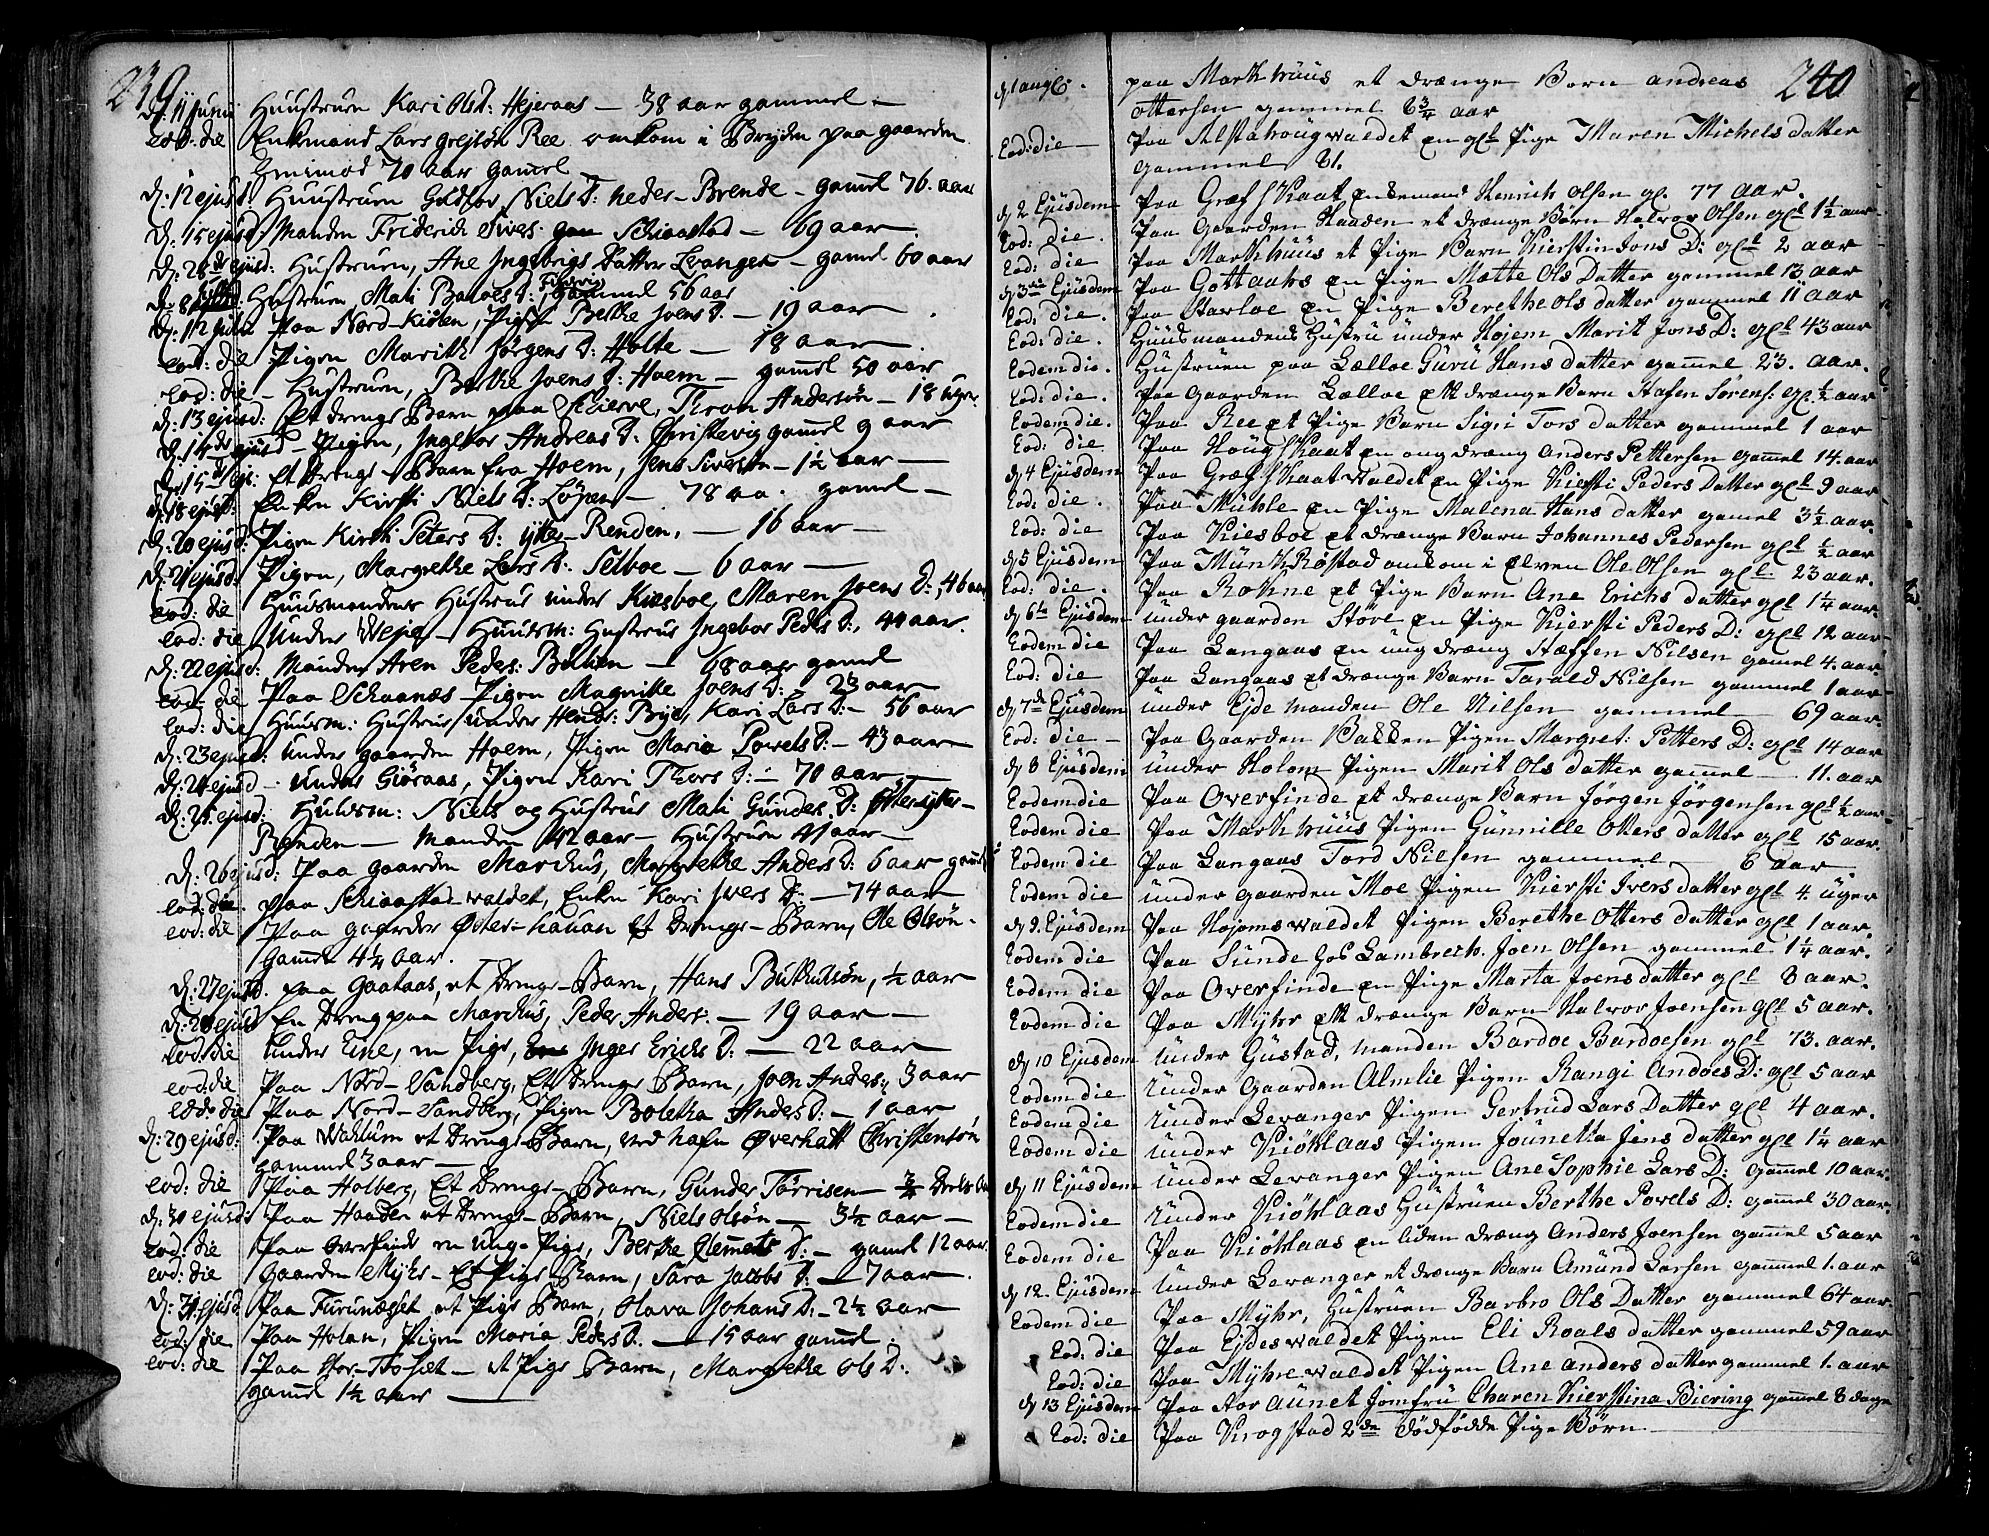 239
d: 11 Junii Huustruen Kari Ols D: Hejeraas — 38 aar gammel —
eod: die Enkemand Lars grejsøn Ree omkom i Bryden paa gaarden
70 aar gamel
d: 12 ejusd: Huustruen Niels D: neder - Brende - gamel 76. aar
d: 15 ejusd: Manden Friderich Sivers. Schiaastad — 69 aar —
d: 28de ejusd: Hustruen, Ane Ingebrigs Datter Levanger — gamel 60 aar
d: 8 Hustruen Mali Baroes D: gammel 56 aar
d: 12 julii Paa Nord-Kiølen, Pigen Berthe Joens D. — 19 aar
eod: die Pigen Marith Jørgens D: Holte — 18 aar
eod: die — Hustruen, Berthe Joens D: Hoem — gamel 50 aar
d: 13 ejusd: Et Drenge Barn paa Skierve, Thron Andersøn — 18 uger
d: 14de ejusd — Pigen, Ingebor Andreas D: Christevig gamel 9 aar
d: 15de eje: Et Drenge Barn fra Hoem, Jens Sivertsn — 1½ aar —
d: 18 ejusd: Enken Kirsti Niels D: Løpen — 78 aa. gamel —
d: 20 ejusd: Pigen Kirsti Peters D: ytter - Renden, — 16 aar —
d: 21 ejusd: Pigen, Margrethe Lars D: Selboe — 6 aar —
eod: die Huusmandens Hustrue under Kiesboe, Maren Joens D:, 46 aar
eod: die Under Weje — Huusm: Hustrue Ingebor Peders D:, 40 aar.
d: 22 ejusd: Manden Aren Peders: — 68 aar gamel
eod: die Paa Schaanæs Pigen Magnille Joens D: 23 aar
eod: die Huusm: Hustrue under Bye, Kari Lars D: — 56 aar
d: 23 ejusd: under gaarden Hoem, Pigen Maria Powels D: — 43 aar
d: 24 ejusd — under Giøraas, Pigen Kari Thors D: — 70 aar —
d: 25 ejusd: Huusm: Niels og Hustrue Mali Gunders. D: Østerytter-
Renden — Manden 42 aar — Hustruen 41 aar —
d: 26 ejusd: Paa gaarden Marchus, Margrethe Anders D: 6 aar gamel
eod: die paa Schiaastadwaldet, Enken Kari Ivers D: — 74 aar —
eod: die Paa gaarden Øster-hauan Et Drenge-Barn, Ole Olsøn.
gamel 4¼ aar.
d: 27 ejusd. paa Gaataas, et Drenge-Barn, Hans , ½ aar
d: 28 ejusd En Dreng paa Marchus, Peder Anders: — 19 aar —
eod: die Under Eine, en Pige, Inger Erichs D: — 22 aar —
eod: die Paa Nord-Sandberg, Et Drenge Barn, Joen Anders:, 3 aar
eod: die Paa Nord-Sandberg, Pigen Boletha Anders D: — 1 aar
d: 29 ejusd: Paa Wahlum et Drenge-Barn, ved nafn Øverhatt Christensøn
gammel 3 aar —
eod: die Paa Holberg, Et Drenge-Barn, Gunder Tørrisen — ¾
d: 30 ejusd: Paa Haaden et Drenge-Barn, Niels Olsøn — 3½ aar —
eod: die Paa Overfinde en unge-Pige, Berthe Clemets D: — gamel 12 aar
eod: die gaarden Myhr - Et Pige-Barn, Sara Jacobs D: — 7 aar.
d: 31 ejusd Paa Furunæset et Pige Barn, Olava Johans D: — 2½ aar
eod: die Paa Holan, Pigen Maria Peders D. — 15 aar gamel.
eod: die Paa Thosæt — et Pige Barn, Margrethe Ols D:
gamel 1½ aar —
240
d 1 aug. paa Markhuus et drænge Barn andreas
ottersen gammel 6¾ aar
Eod: die — Paa Alstahougwaldet en gl. Pige Maren Michels datter
gammel 81.
d 2 Ejusdem Paa Græfskaat Enkemand Henrich Olsen gl. 77 aar.
Eod: die. Paa Gaarden Haaden et drænge Børn Halvor Olsen gl. 1½ aar
Eod: die Paa Markhuus et Pige Barn Kierstin Jons D: gl. 2 aar
d 3de Ejusdem Paa Gottaahs en Pige Mætte Ols Datter gammel 13 aar
Eod: die. Paa Harloe en Pige Berethe Ols datter gammel 11 aar
Eod: die. Huusmandens Hustru under Hojem Marit Jons D: gl. 43 aar
Eodem die. Hustruen paa Lælloe Guru Hans datter gammel 23. aar.
Eod: die. Paa Gaarden Lælloe ett drænge Barn Stafen Sørens: gl. ½ aar
Eodem die. Paa Ree et Pige Barn Sigri Tors datter gammel 1 aar
Eod: die Paa Hougskaat en ong dræng Anders Pettersen gammel 14. aar
d 4 Ejusdem Paa Græfskaatwaldet en Pige Kiersti Peders Datter gl. 9 aar
Eod: die. Paa Muhle en Pige Malena Hans datter gamel 3½ aar.
Eod: die Paa Kiesboe et drænge Barn Johannes Pedersen gl. ½ aar
d 5 Ejusdem Paa Munkrøstad omkom i Elven Ole Olsen gl. 23 aar.
Eod: die. Paa Rohne et Pige Barn Ane Erichs datter gl. 1¼ aar
d 6te Ejusdem under gaarden Støre en Pige Kiersti Peders D: gl. 12 aar
Eodem die Paa Langaas en ung dræng Stæffen Nilsen gamel 4. aar
Eod: die Paa Langaas et drænge Barn Tarald Nilsen gammel 1 aar-
d 7de Ejusdem under Ejde manden Ole Nilsen gammel — 69 aar
Eod: die — Paa Gaarden Bakken Pigen Margret: Petters D: gl. 14 aar
d 8 Ejusdem under Holom Pigen Marit Ols datter gammel — 11. aar
Eodem die Paa Overfinde et drænge Barn Jørgen Jørgensen gl. ½ aar-
Eodem die Paa Markhuus Pigen Gunnille Otters datter gl. 15 aar.
Eodem die Paa Langaas Tord Nilsen gammel — 6 aar
Eodem die under gaarden Moe Pigen Kiersti Ivers datter gl. 4. uger
d 9. Ejusdem Paa Hojemswaldet Pigen Berethe Otters datter gl. 1 aar.
Eodem die Paa Sunde hos Lambrech. Joen Olsen gammel 1¼ aar.
Eodem die Paa Overfinde en Pige Marta Joens datter gl. 8 aar.
Eodem die Paa Myhr ett drænge Barn Halvor Joensen gl. 5 aar.
d 10 Ejusdem Under Gustad, manden Bardoe Bardoesen gl. 73. aar.
Eodem die Under Gaarden Almlie Pigen Rangi Andoes D: gl. 5 aar
Eodem die Under Levanger Pigen Gertrud Lars Datter gl. 4 aar.
Eodem die under Kiøhlaas Pigen Jounetta Jens datter gl. 1¼ aar
d 11 Ejusdem under Levanger Pigen Ane Sophie Lars D: gammel 10 aar.
Eodem die Under Kiøhlaas Hustruen Berthe Povels D: gammel 30 aar
Eodem die Paa Kiøhlaas en liden dræng Anders Joensen gammel 5 aar
d 12. Ejusdem under Levanger et drænge Barn Amund Larsen gammel 1. aar
Eodem die Paa Myhr, Hustruen Barbro Ols Datter gammel 64 aar.
Eod: die Paa Ejdeswaldet Pigen Eli Roals datter gammel 59 aar
Eod: die Paa Myhrewaldet Pigen Ane Anders datter gammel 1. aar
d 13 Ejusdem Paa Roraunet Jomfru Charen Kierstina Biering gammel 8 dage
Eod: die Paa Krogstad 2de dødfødde Pige Børn —